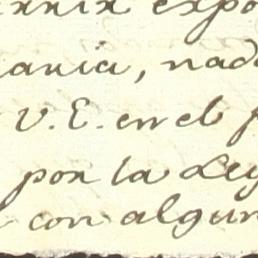 expo
ania, nad
V. E. en el
por la Ley
con algun